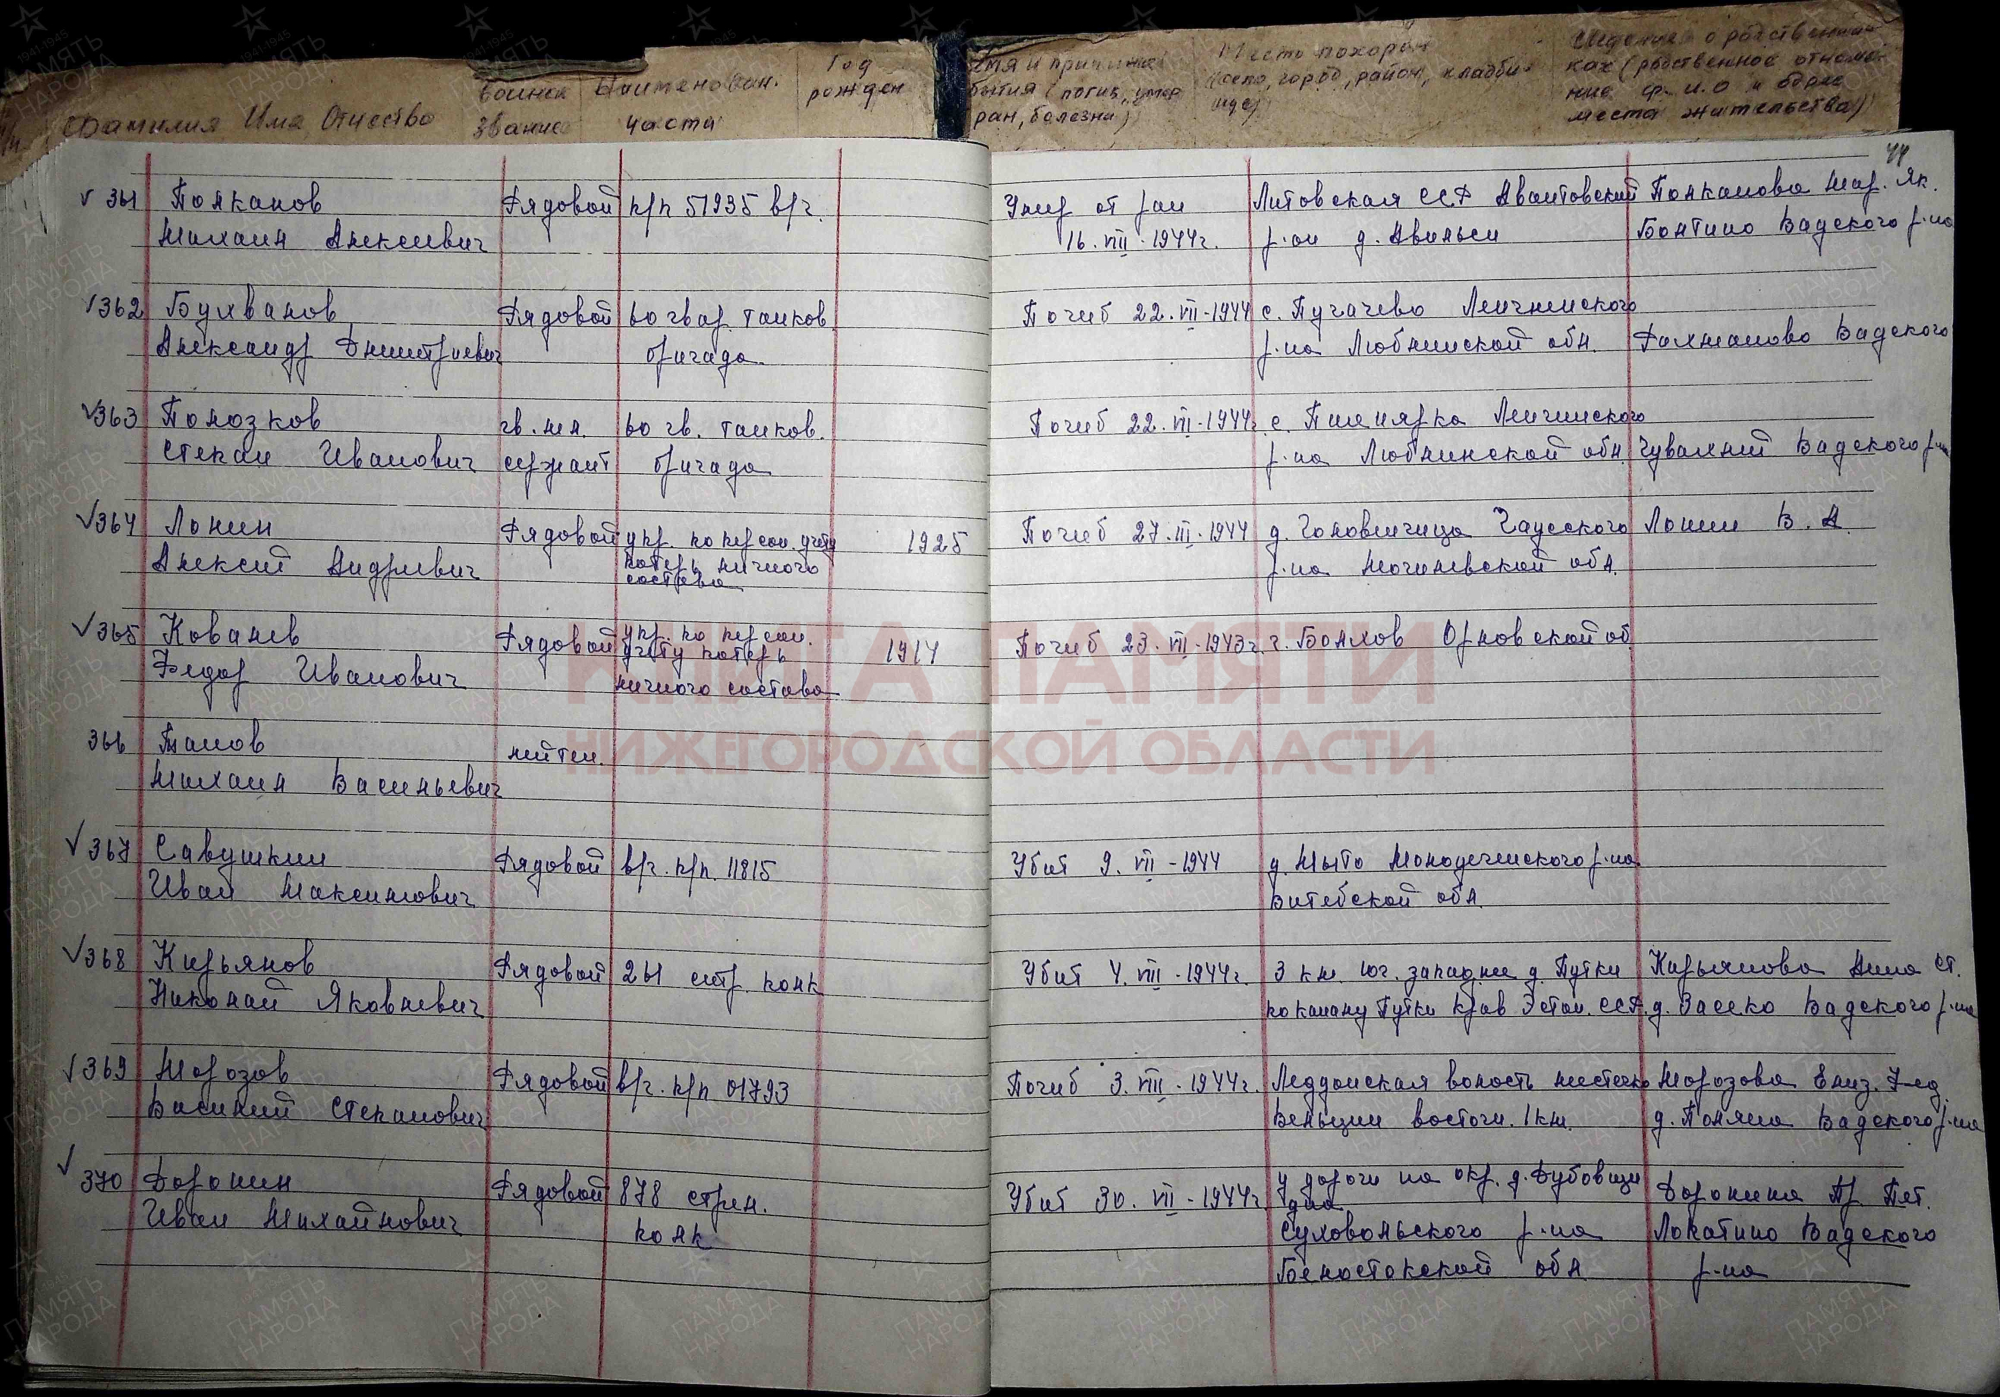 Фамилия Имя Отчество
воинск звание
Наименован. части
Год рожден
Время и причина
бытия (погиб, умер
ран, болезни)
Место похорон
(село, город, район, кладби-
ще)
Сведения о родственни-
ках (родственное отноше-
ние ф.и.о и адрес
места жительства)
44
361 Полканов Рядовой п/п 51935 в/ч. Умер от ран Литовская ССР Полканова Мар. Як.
Михаил Алексеевич 16.VIII.1944г. р-он д. Бонтино Вадского р-на
362 Булванов Рядовой 60 гвар. танков. Погиб 22.VII-1944 с. Пугачево
Александр Дмитриевич бригада р-на Люблинской обл. Рахманово Вадского
363 Полозков гв. мл. 60 гв. танков. Погиб 22.VII-1944г. с.
Степан Иванович сержант бригада р-на Люблинской обл. Чувахлей Вадского р-на
364 Лонин Рядовой упр. по персон. учету 1925 Погиб 27.III-1944 д. Головенчица Чаусского Лонин В. А.
Алексей Андреевич потерь личного р-на Могилевской обл.
состава
365 Ковалев Рядовой упр. по персон. 1914 Погиб 23.VII-1943г. г. Болхов Орловской об
учету потерь
Федор Иванович личного состава
366 Панов лейтен.
Михаил Васильевич
367 Савушкин Рядовой в/ч. п/п. 11815 Убит 9.VII-1944 д. Мыто Молодечненского р-на
Иван Максимович Витебской обл.
368 Кирьянов Рядовой 261 стр. полк Убит 4.VIII-1944г. 3 км. юг. западнее д. Путки Кирьянова Анна Ст.
Николай Яковлевич Путки Эстон. ССР. д. Засеко Вадского р-на
369 Морозов Рядовой в/ч. п/п 01793 Погиб 3.VIII-1944г. волость местечко Морозова Елиз. Фед.
Василий Степанович восточн. 1км. д. Поляна Вадского р-на
370 Доронин Рядовой 878 стрел. Убит 30.VII-1944г. у дороги на окр. д. Доронина Пр. Пет.
Иван Михайлович полк Суховольского р-на Лопатино Вадского
Белостокской обл. р-на
КНИГА ПАМЯТИ
НИЖЕГОРОДСКОЙ ОБЛАСТИ
1941-1945
ПАМЯТЬ
НАРОДА